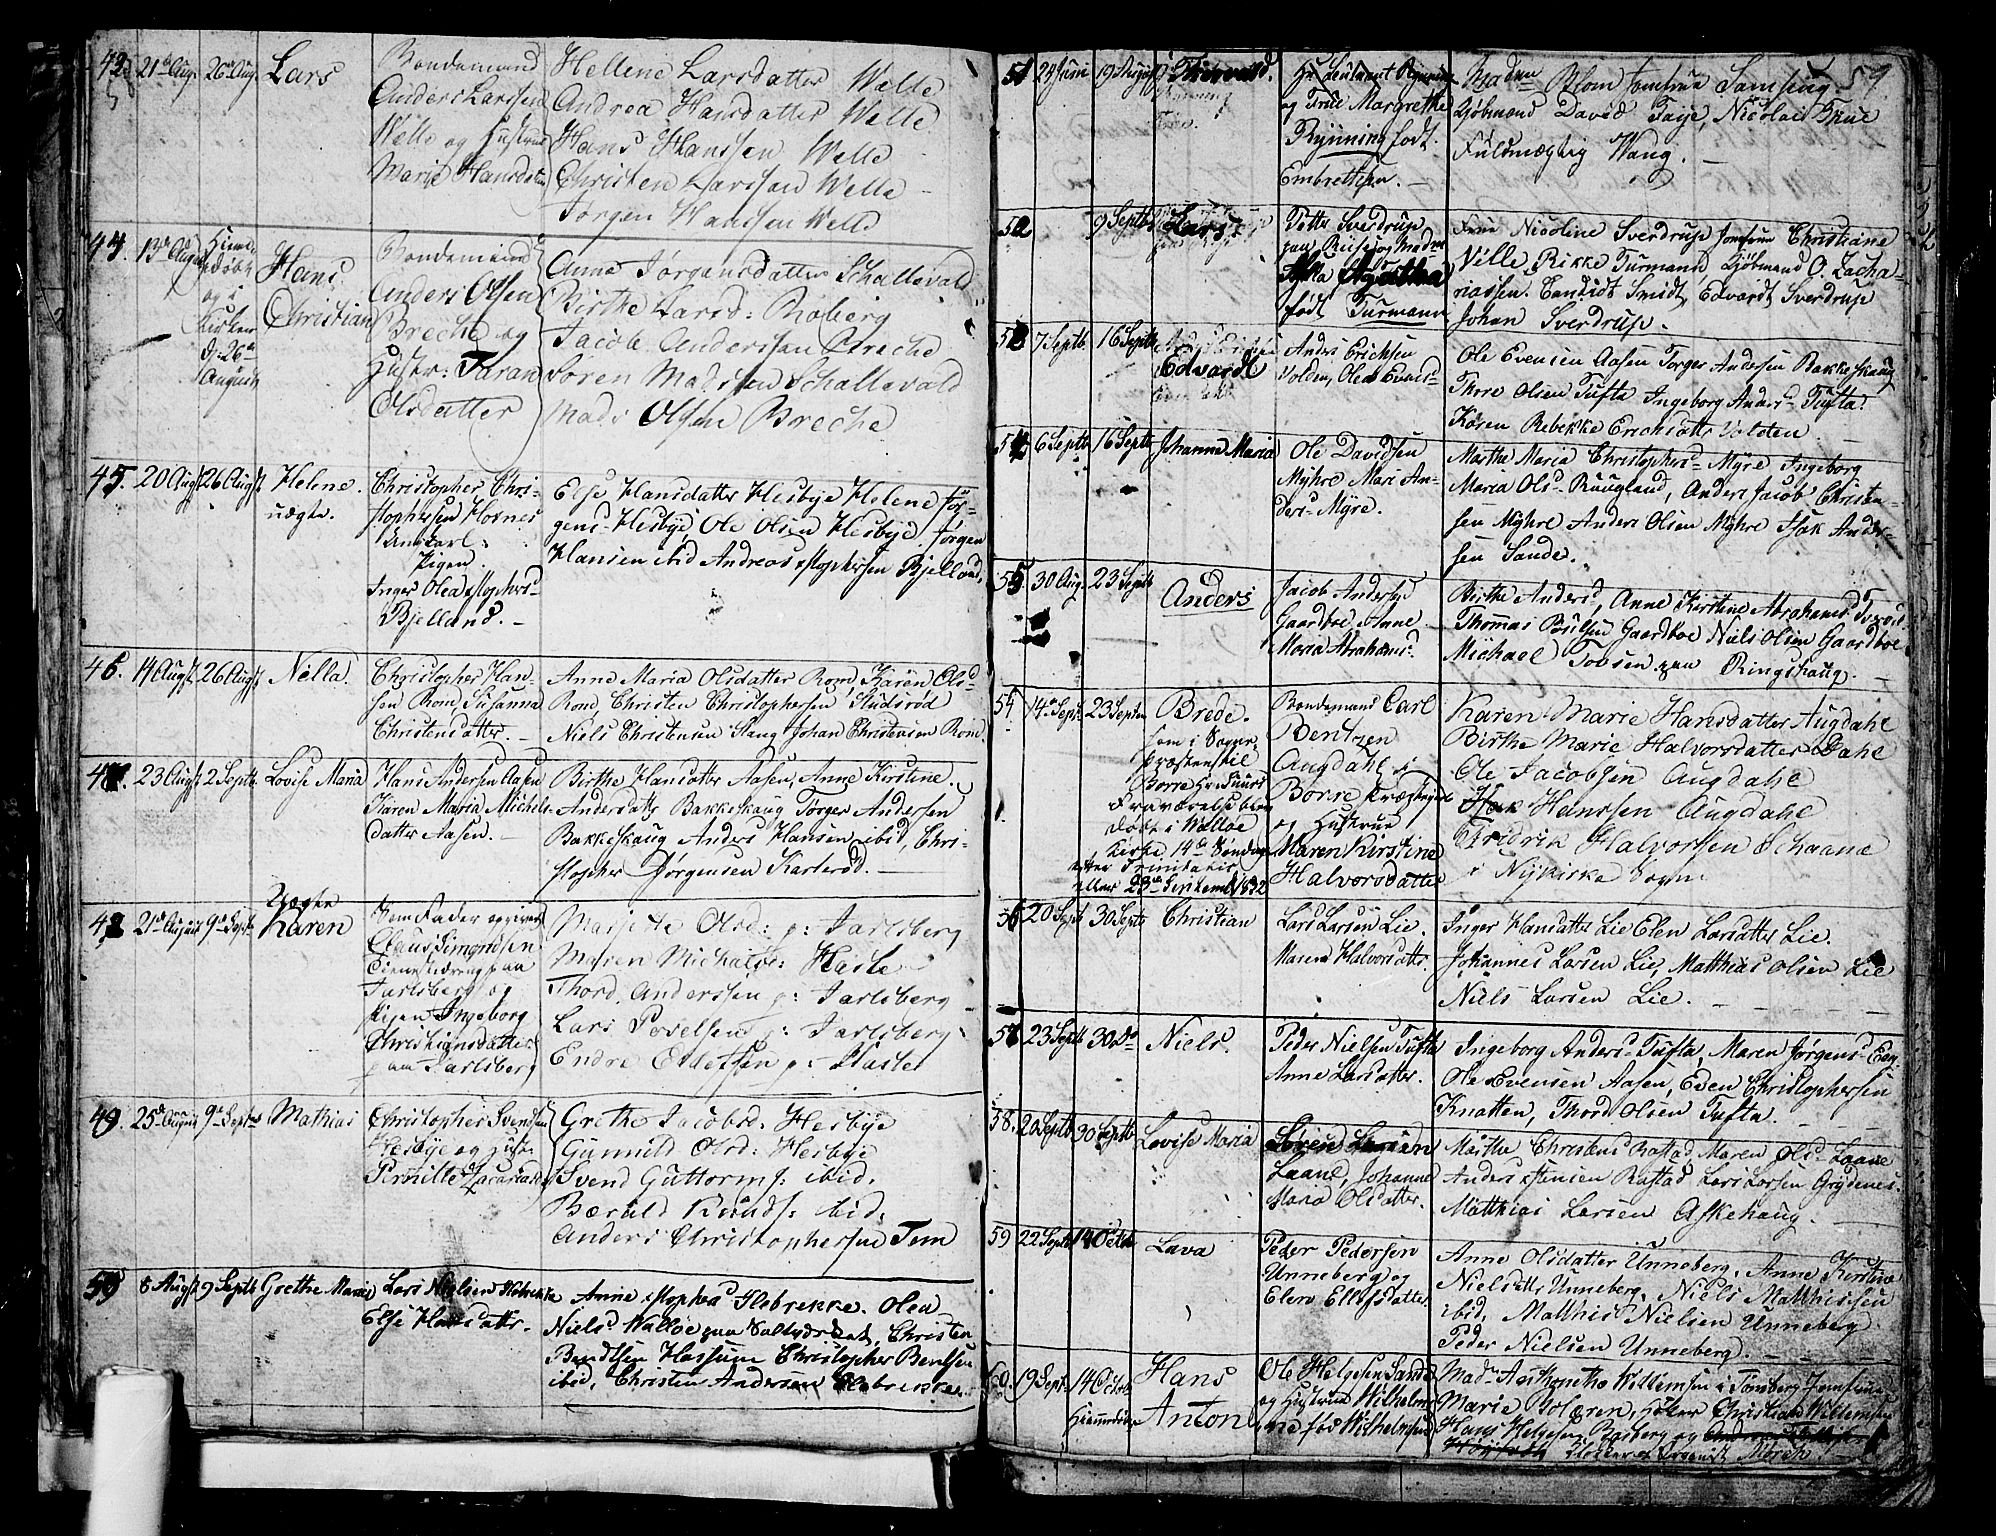 43. 21de Aug. 26de Aug. Lars
Bondemand
Anders Larssen
Welle og Hustrue
Marie Hansdatter
Hellene Larsdatter Welle
Andrea Hansdatter Welle
Hans Hanssen Welle
Christen Larssen Welle
Jørgen Hanssen Welle
44. 13de Aug.
og i
Kirken
d. 26de
August
Hans
Christian
Bondemand
Anders Olsen
Breche og
Hustr: Taran
Olsdatter
Anne Jørgensdatter Schallevald
Birthe Larsd: Roberg
Jacob Anderssen Breche
Søren Madssen Schallevald
Mads Olssen Breche
45. 20 Augst 26 Augst Helene.
uægte.
Christopher Chri-
stophersen Hornes
Ungkarl:
Pigen
Inger Olea stophers-
Bjelland. -
Else Hansdatter Hesbye Helene Jør-
gens- Hesbye, Ole Olsen Hesbye. Jørgen
Hansen ibd Andreas stophersen Bjelland.
46. 14 Augst 26 Augst Nella.
Christopher Han-
sen Rom, Susanna
Christensdatter. -
Anne Maria Olsdatter Rom, Karen Ols-
Rom, Christen Christophersen Studsrød
Niels Christensen Haug Johan Christensen Rom.
47. 23 Augst 2 Septb. Lovise Maria
Hans Andersen Aasen
Karen Maria Michels-
datter Aasen. -
Birthe Hansdatter Aasen, Anne Kirstine
Andersdattr Bakkeskaug Torger Andersen
Bakkeskaug Anders Hansen ibid, Chri-
stopher Jørgensen Karlsrød. -
48 21de August 9de Septb.
Uægte
Karen
Som Fader opgives
Claus Simonssen
Tienestedreng paa
Jarlsberg og
Pigen Ingeborg
Christiansdatter
paa Jarlsberg
Olsd: p: Jarlsberg
Maren Michalsd: Hasle
Thord Anderssen p: Jarlsberg
Lars Povelssen p: Jarlsberg.
Endre p: Hasle
49. 25de August 9de Septbr Mathias
Christopher Svendsen
Hesbye og Hust:
Pernille
Grethe Jacobsd: Hesbye
Gunnild Olsd: Hesbye
Svend Guttorms: ibid.
Knuds: ibid:
Anders Christophersen Tem
50 8 Augst 9 Septb Grethe Maria
Lars Nielsen Flebrekke
Else Hansdattr.
Anne stophsd Flebrekke. Olea
Nielsd Walløe paa Saltværket, Christen
Bendtsen Hassum Christopher Bentsen
ibid, Christen Andersen Flebrekke.
59
51 24 Juni 19 August
Hr. Leutnant Rynning
og Frue Margrethe
Rynning født
Embretsen. -
Madm Blom Jomfrue Samsing
Kjøbmand David Faye, Nicolai True
Fuldmægtig Wang. -
52 9 Septb Lars
Peter Sverdrup
paa
født Turmann.
Frue Nicoline Sverdrup Jomfrue Christiane
Nille, Rikke Turmann, Kjøbmand O. Zacha-
riassen. Candidt Smidt, Edvardt Sverdrup
Johan Sverdrup.
53 7 Septb. 16 Septb
Edvard
Anders Erichsen
Volden, Olea Evens-
Ole Evensen Aasen Torger Andersen Bakkeskaug
Thore Olsen Tufta Ingeborg Anders- Tufta.
Karen Rebekke Erichsdattr Volden
54 6 Septb 16 Septb Johanne Maria
Ole Davidsen
Myhre Mari An-
ders- Myre.
Marthe Maria Christophers- Myre Ingeborg
Maria Ols- Ruugland, Anders Jacob Christen-
sen Myhre Anders Olsen Myhre Isak Ander-
sen Sande.
55 30 Aug. 23 Septb
Anders
Jacob Anders
Gaardboe Anne
Maria Abrahams-
Birthe Andersd, Anne Kirstine Abrahamsd
Thommas Poulsen Gaardboe Niels Olsen Gaardboe
Michael Tovsen paa Ringshaug. -
54. 14de Septb 23 Septbr Brede.
som i Sogne-
præstens til
Borre Hr.
Fraværelse blev
døbt i Walløe
Kirke 14de Søndag
efter Trinitatis
eller 23de Septembr 1832
Bondemand Carl
Bentzen
Augdahl i
Borre Præstegield
og Hustrue
Maren Kirstine
Halvorsdatter
Karen Marie Hansdatter Augdahl
Birthe Marie Halvorsdatter Dahl
Ole Jacobsen Augdahl
Hanssen Augdahl
Fredrik Halvorssen Schaane
i Nykirke Sogn
56 20 Septb 30 Septb Christian
Lars Larsen Lie.
Maren Halvorsdattr.
Inger Hansdatter Lie Elen Larsdatter Lie.
Johannes Larsen Lie, Matthias Olsen Lie
Niels Larsen Lie. -
57 23 Septb 30 do Niels.
Peder Nielsen Tufta
Anne Larsdatter.
Ingeborg Anders- Tufta, Maren Jørgens-
Ole Evensen Aasen, Even Christophersen
Knatten, Thord Olsen Tufta. -
58. 20 Septb 30 Septb Lovise Maria
Søren Larsen
Laane, Johanne
Maria Olsdatter.
Marthe Christens Rastad Maren Ols- Laane
Anders stensen Rastad Lars Larsen Grydenes.
Matthias Larsen Askehaug.
59 22 Septb 14 Octbr Lava
Peder Pedersen
Unneberg og
Elen Ellefsdatter
Anne Olsdatter Unneberg. Anne Kirstine
Nielsdttr Unneberg. Niels Matthissen
ibid, Matthis Nielsen Unneberg.
Peder Nielsen Unneberg. -
60. 19 Septb. 14 Octbr.
Hiemmedøbt
Hans
Anton
Ole Helgesen Sande
og Hustrue Wilhelm-
ine fød Wilhelmsen
Madm Willemsen i Tønsberg Jomfrue
Marie Bolæren, Christian Willemsen
Hans Helgesen Basberg og
Klokker og Organist